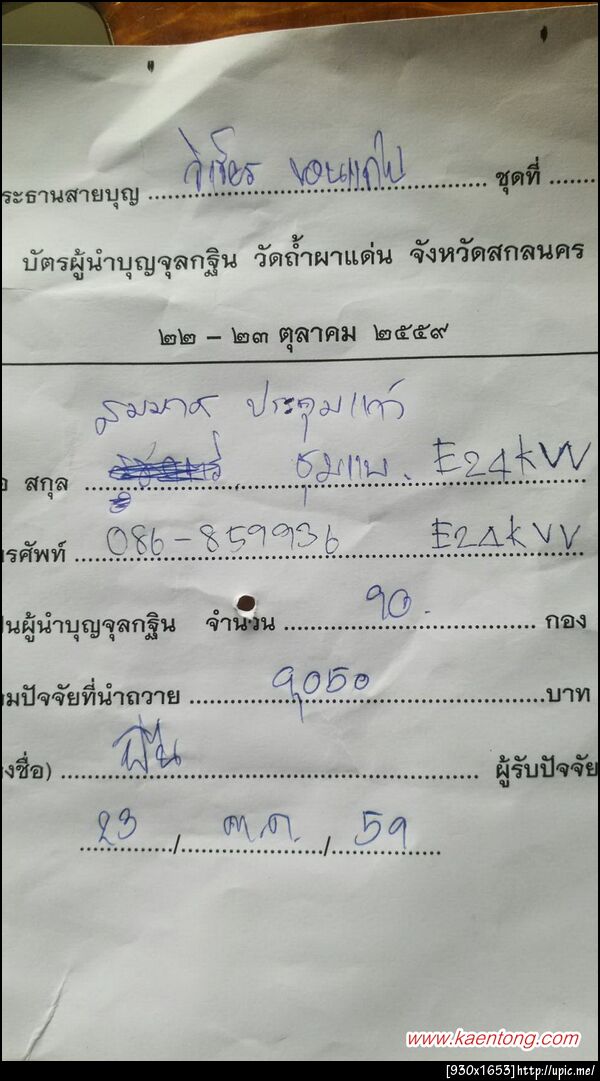 ระธานสายบุญ วิเชียร ขอนแก่น ชุดที่
บัตรผู้นำบุญจุลกฐิน วัดถ้ำผาแด่น จังหวัดสกลนคร
๒๒ - ๒๓ ตุลาคม ๒๕๕๙
ประทุมแก้ว
อ สกุล ชุมแพ. E24KVV
ทรศัพท์ 086-859936 E24KVV
ป็นผู้นำบุญจุลกฐิน จำนวน 90.- กอง
มปัจจัยที่นำถวาย 9,050 บาท
งชื่อ) ผู้รับปัจจัย
23 / ต.ค. / 59
www.kaentong.com
[930x1653]http://upic.me/